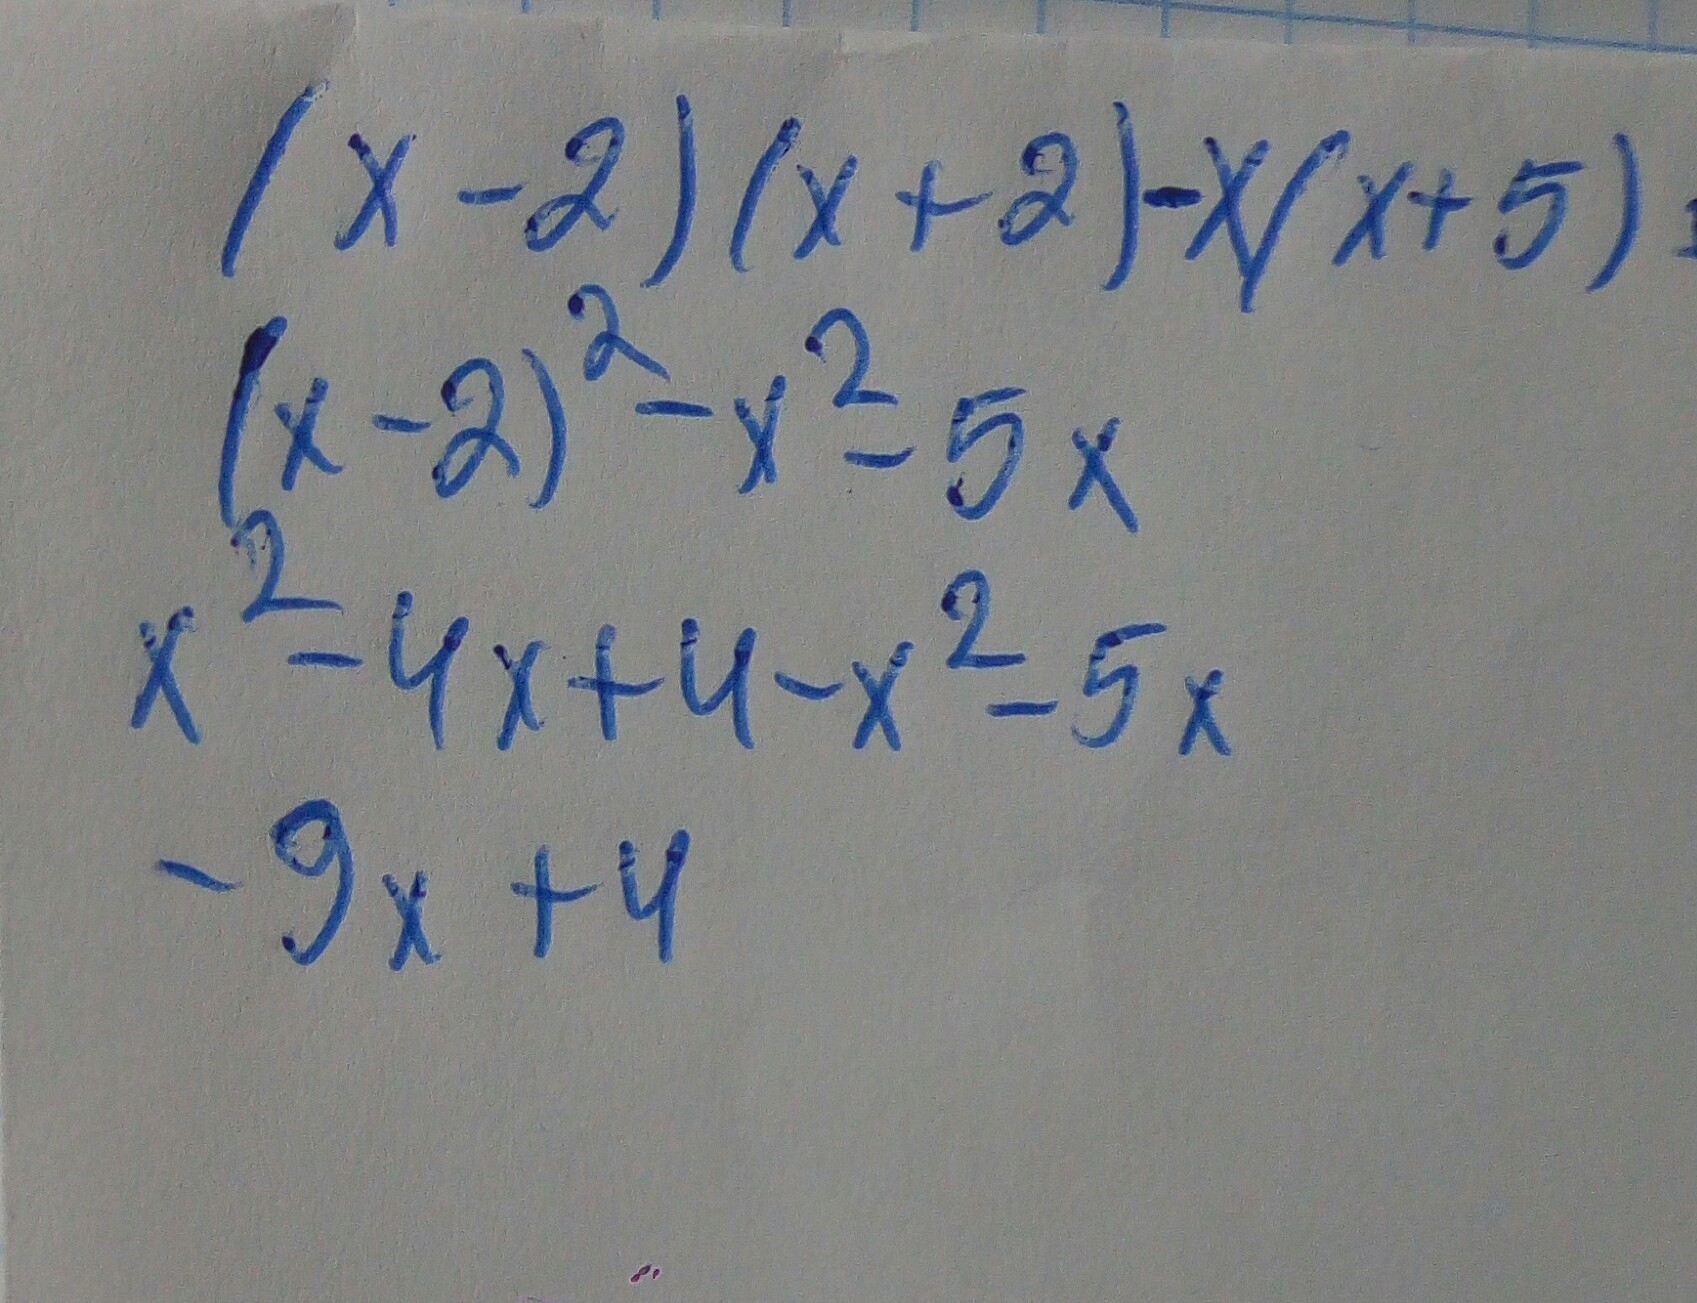 (x-2)(x+2)-x(x+5)=
(x-2)²-x²-5x
x²-4x+4-x²-5x
-9x+4